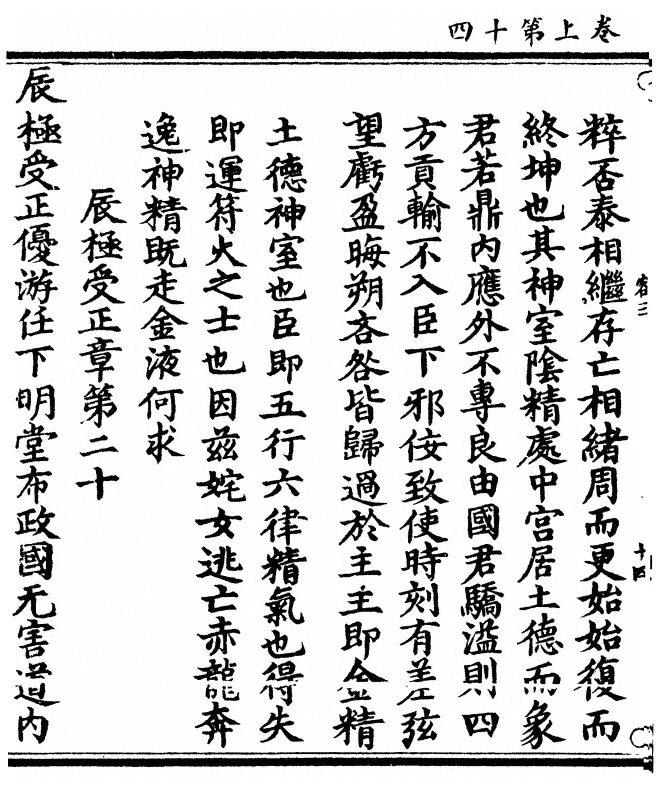 卷上第十四
容三
十四
粹否泰相繼存亡相緒周而更始始復而
終坤也其神室陰精處中宮居土德而象
君若鼎內應外不專良由國君驕溢則四
方貢輸不入臣下邪佞致使時刻有差弦
望虧盈晦朔吝咎皆歸過於主主即金精
土德神室也臣即五行六律精氣也得失
即運符火之士也因兹姹女逃亡赤龍奔
逸神精既走金液何求
辰極受正章第二十
辰極受正優游任下明堂布政國无害道內